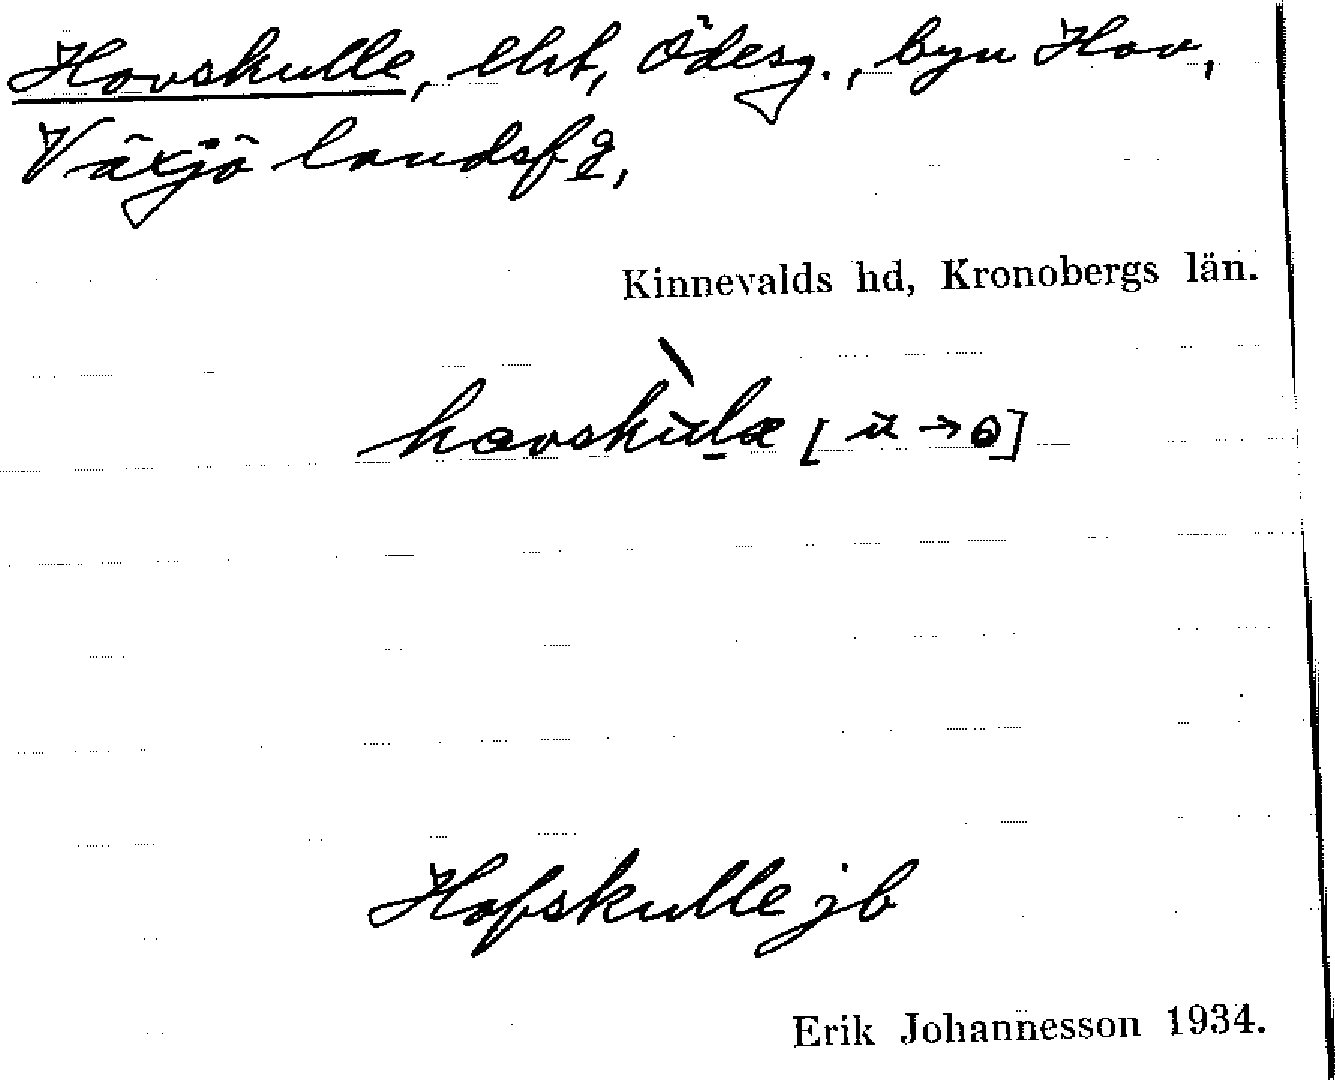 Hovskulle, lht, Ödesg., byn Hov,
Växjö landsfg,
Kinnevalds hd, Kronobergs län.
hovskùlæ [ → ]
Hofskulle jb
Erik Johannesson 1934.